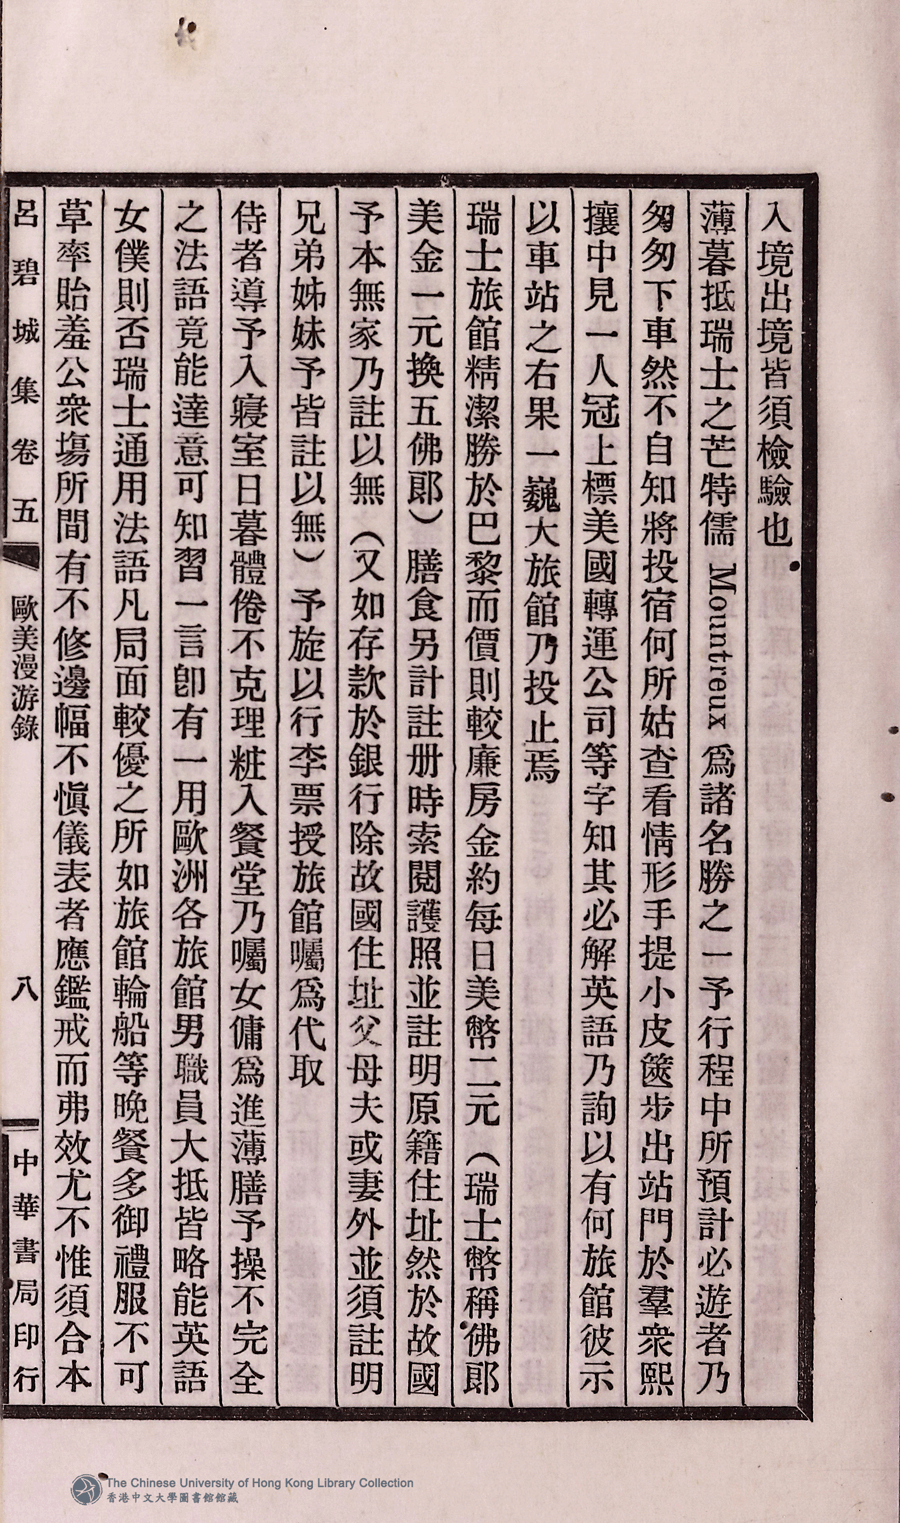 入境出境皆須檢驗也
薄暮抵瑞士之芒特儒 Mountreux 爲諸名勝之一予行程中所預計必遊者乃
匆匆下車然不自知將投宿何所姑查看情形手提小皮篋步出站門於羣衆熙
攘中見一人冠上標美國轉運公司等字知其必解英語乃詢以有何旅館彼示
以車站之右果一巍大旅館乃投止焉
瑞士旅館精潔勝於巴黎而價則較廉房金約每日美幣二元（瑞士幣稱佛郞
美金一元換五佛郞）膳食另計註册時索閱護照並註明原籍住址然於故國
予本無家乃註以無（又如存款於銀行除故國住址父母夫或妻外並須註明
兄弟姊妹予皆註以無）予旋以行李票授旅館囑爲代取
侍者導予入寢室日暮體倦不克理粧入餐堂乃囑女傭爲進薄膳予操不完全
之法語竟能達意可知習一言卽有一用歐洲各旅館男職員大抵皆略能英語
女僕則否瑞士通用法語凡局面較優之所如旅館輪船等晚餐多御禮服不可
草率貽羞公衆塲所間有不修邊幅不愼儀表者應鑑戒而弗效尤不惟須合本
呂碧城集卷五
歐美漫游錄
八
中華書局印行
The Chinese University of Hong Kong Library Collection
香港中文大學圖書館館藏